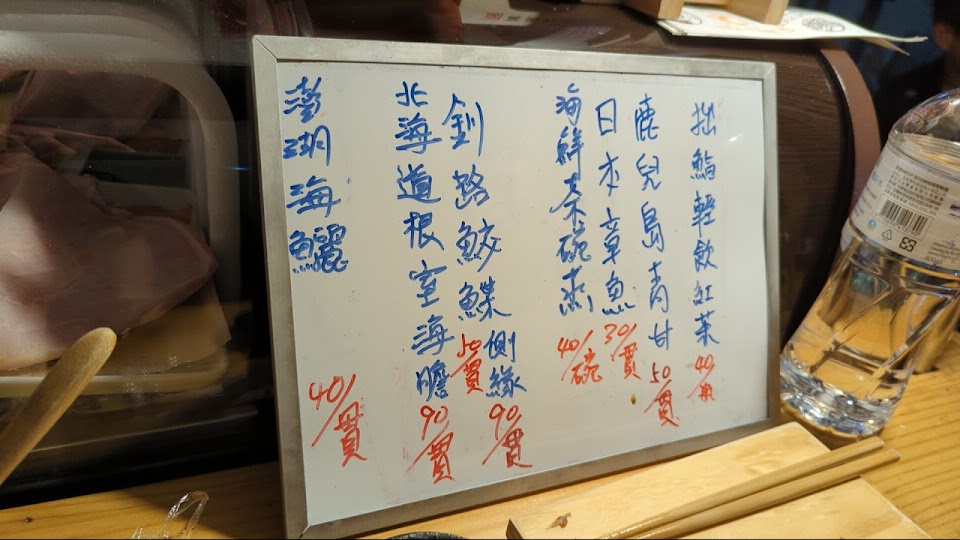 拙鮨輕飲紅茶 40/典
鹿兒島青甘 50/貫
日本章魚 30/貫
海鮮茶碗蒸 40/碗
釧路鮫鰈 50/貫
側緣 90/貫
北海道根室海膽 90/貫
澎湖海鱺 40/貫